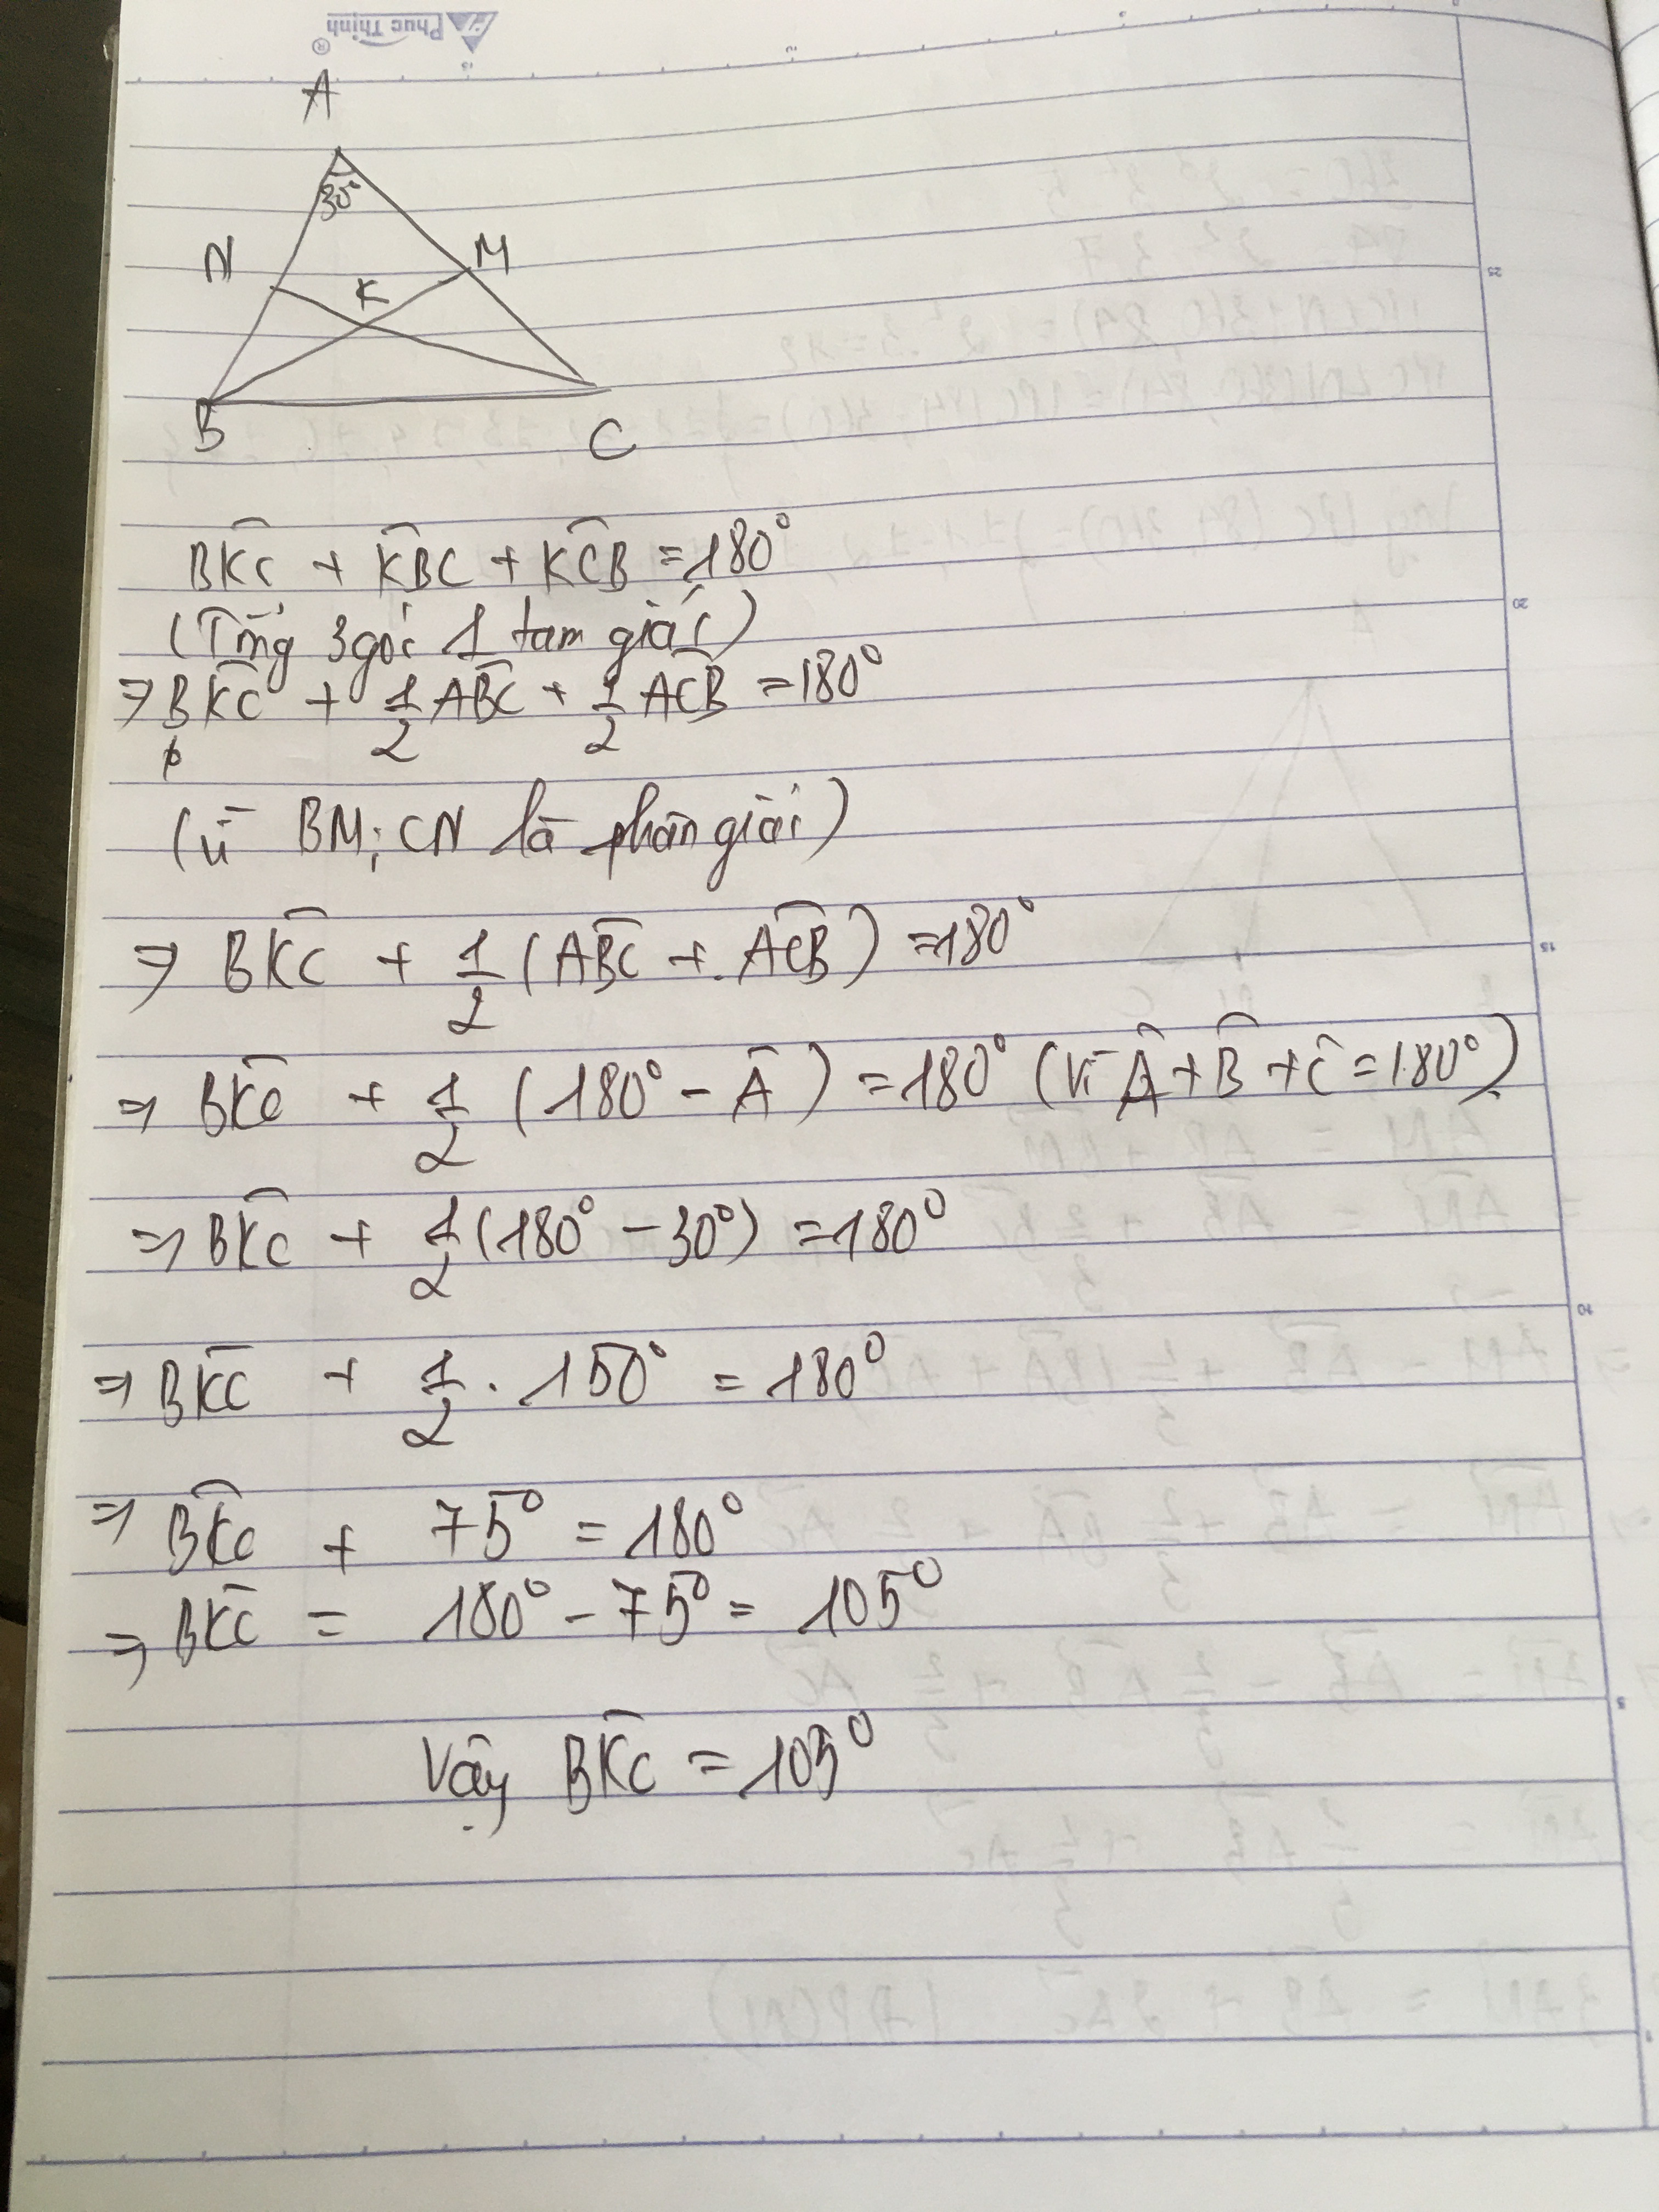 Phúc Thịnh
A
30°
N
M
K
B
C
BKC + KBC + KCB = 180°
(Tổng 3 góc 1 tam giác)
⇒ BKC + 1/2 ABC + 1/2 ACB = 180°
(vì BM; CN là phân giác)
⇒ BKC + 1/2 (ABC + ACB) = 180°
⇒ BKC + 1/2 (180° - Â) = 180° (vì Â + B̂ + Ĉ = 180°)
⇒ BKC + 1/2 (180° - 30°) = 180°
⇒ BKC + 1/2 . 150° = 180°
⇒ BKC + 75° = 180°
⇒ BKC = 180° - 75° = 105°
Vậy BKC = 105°